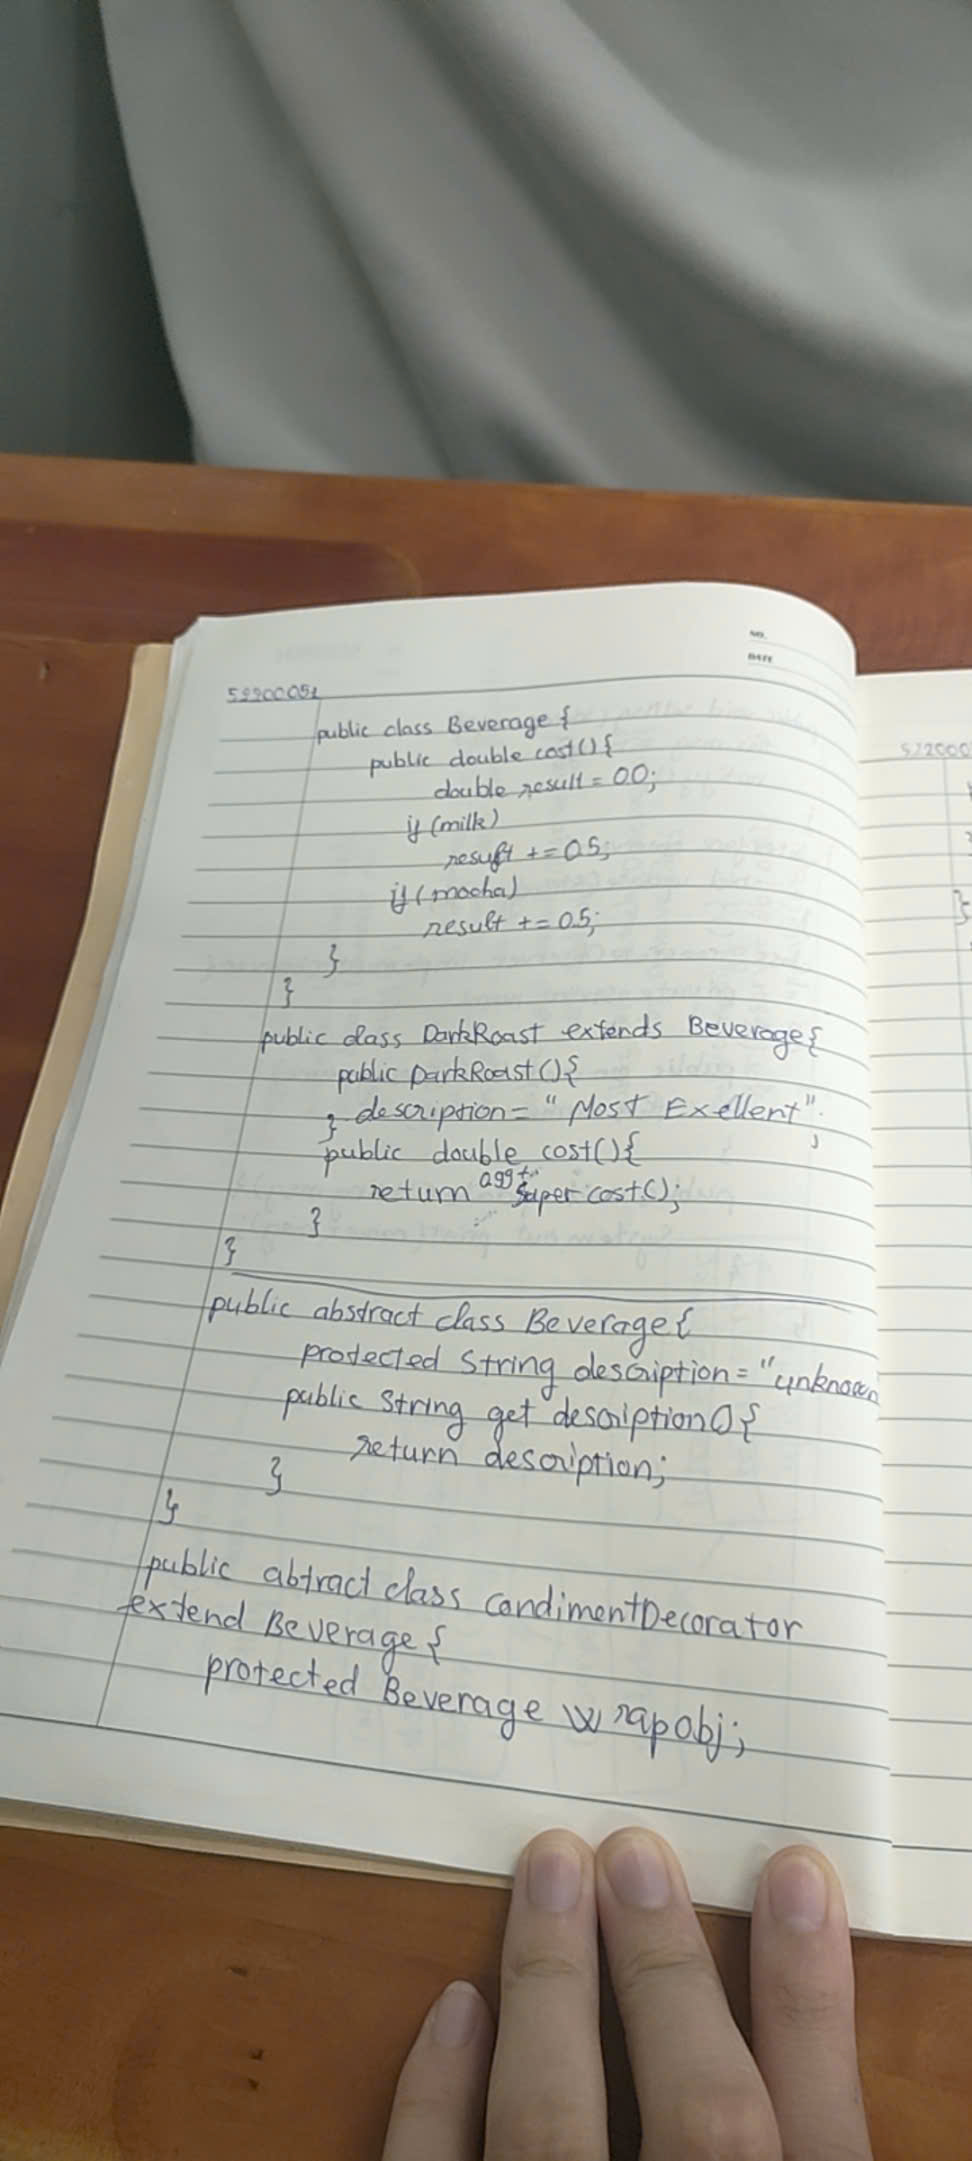 NO.
DATE
52200051
public class Beverage {
public double cost() {
double result = 0.0;
if (milk)
result += 0.5;
if (mocha)
result += 0.5;
}
}
public class DarkRoast extends Beverage {
public DarkRoast() {
description = "Most Exellent";
}
public double cost() {
return 0.99 + super.cost();
}
}
public abstract class Beverage {
protected String description = "unknown
public String get description() {
return description;
}
}
public abtract class CondimentDecorator
extend Beverage {
protected Beverage wrapobj;
52200
}